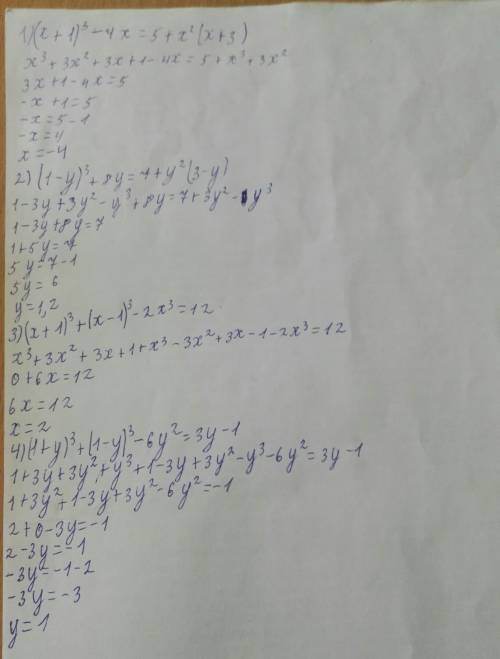 1)(x+1)³-4x=5+x²(x+3)
x³+3x²+3x+1-4x=5+x³+3x²
3x+1-4x=5
-x+1=5
-x=5-1
-x=4
x=-4
2)(1-y)³+8y=7+y²(3-y)
1-3y+3y²-y³+8y=7+3y²-y³
1-3y+8y=7
1+5y=7
5y=7-1
5y=6
y=1,2
3)(x+1)³+(x-1)³-2x³=12
x³+3x²+3x+1+x³-3x²+3x-1-2x³=12
0+6x=12
6x=12
x=2
4)(1+y)³+(1-y)³-6y²=3y-1
1+3y+3y²+y³+1-3y+3y²-y³-6y²=3y-1
1+3y²+1-3y+3y²-6y²=-1
2+0-3y=-1
2-3y=-1
-3y=-1-2
-3y=-3
y=1